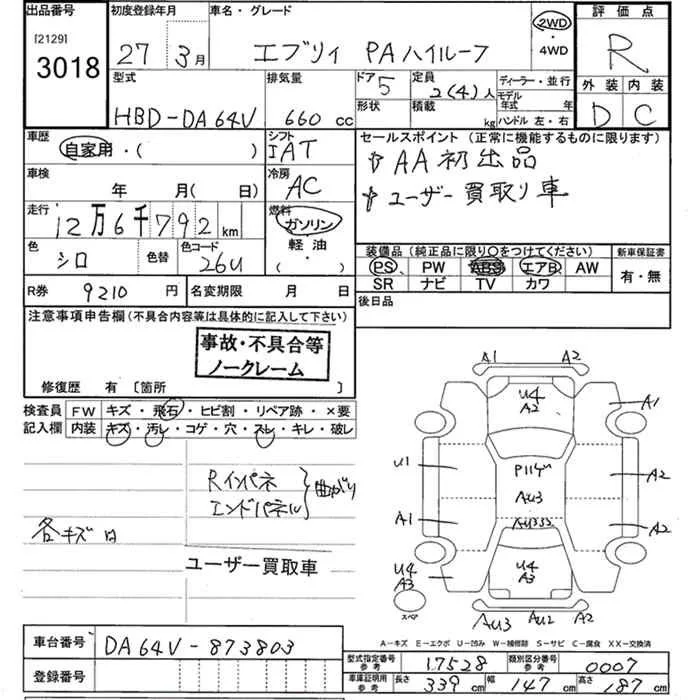 出品番号 初度登録年月 車名・グレード 評価点
[2129]
3018
27 3月 エブリィ PAハイルーフ 2WD・4WD R
型式 排気量 ドア 定員 ディーラー・並行 外装 内装
5 2(4)人 モデル年式 年
HBD-DA64V 660cc 形状 積載 kg ハンドル 左・右 D C
車歴 シフト セールスポイント (正常に機能するものに限ります)
自家用・( ) IAT AA初出品
車検 冷房 ユーザー買取り車
年 月( 日) AC
走行 燃料
12万6千792km ガソリン・軽油・( )
色 色替 色コード 装備品 (純正品に限り○をつけてください) 新車保証書
シロ 26U PS PW ABS エアB AW 有・無
SR ナビ TV カワ
R券 9210円 名変期限 月 日 後日品
注意事項申告欄 (不具合内容等は具体的に記入して下さい)
事故・不具合等
ノークレーム
修復歴 有 [箇所 ]
検査員 FW キズ・飛石・ヒビ割・リペア跡・×要
記入欄 内装 キズ・汚レ・コゲ・穴・スレ・キレ・破レ
A1 A2
U4
A2
A1
Rインパネ
エンドパネル
曲がり
U1 P11ヶ A2
AU3
各キズ凹
A1 AU3S2 A2
ユーザー買取車
U4
A3
U4
A3
スペア AU3 AU2 A3
A-キズ E-エクボ U-凹み W-補修跡 S-サビ C-腐食 XX-交換済
車台番号 DA64V-873803
型式指定番号 参考 17528 類別区分番号 参考 0007
登録番号
車庫証明用 参考 長さ 339cm 幅 147cm 高さ 187cm